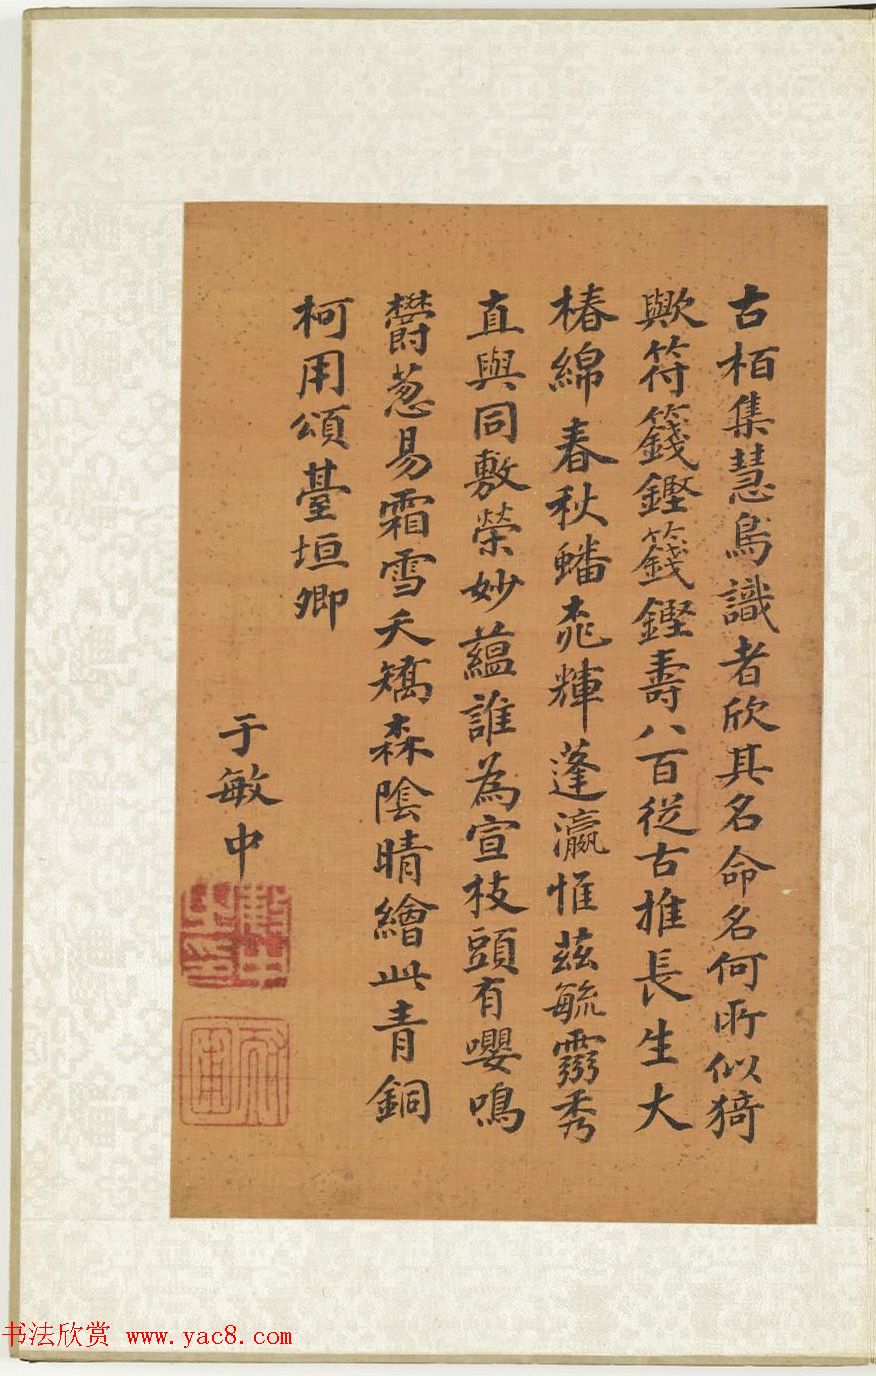 古栢集慧鳥識者欣其名命名何所似猗
歟符籛鏗籛鏗壽八百從古推長生大
椿綿春秋蟠桃輝蓬瀛惟茲毓靈秀
直與同敷榮妙蘊誰為宣枝頭有嚶鳴
欝葱易霜雪夭矯森陰晴繪此青銅
柯用頌臺垣卿
于敏中
书法欣赏 www.yac8.com